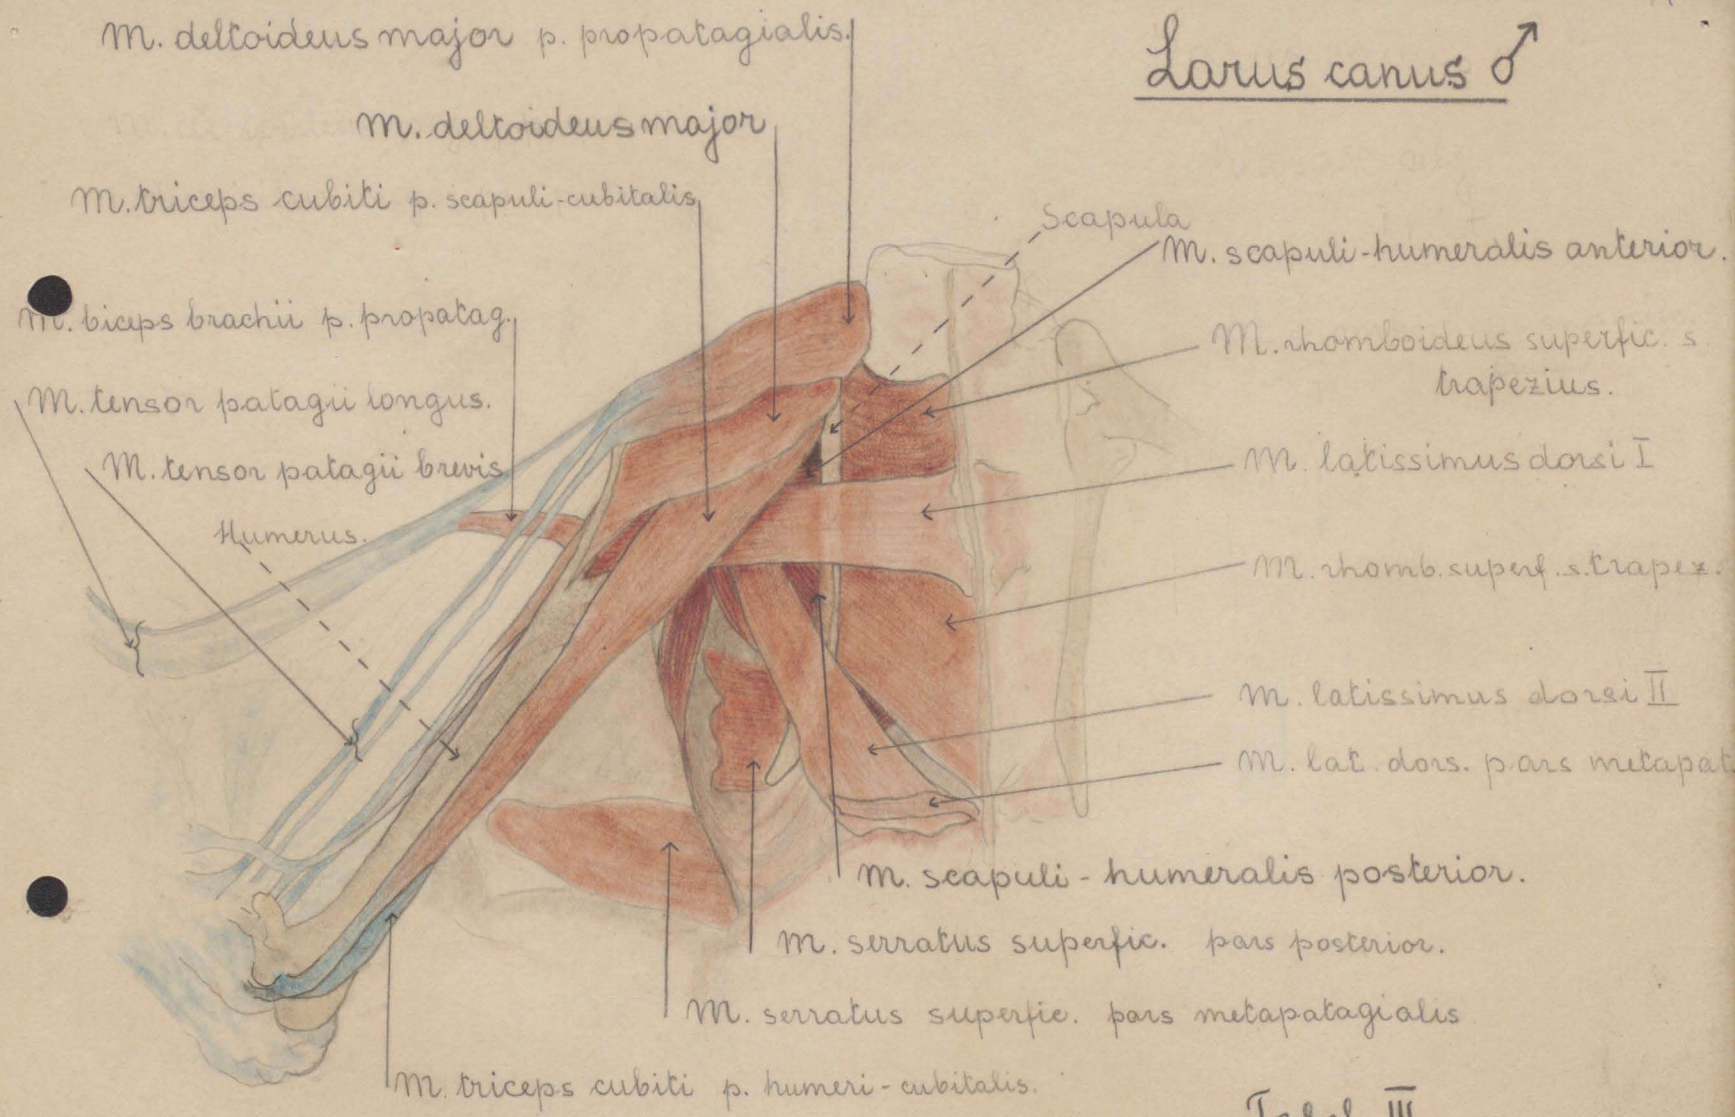 M. deltoideus major p. propatagialis.
Larus canus ♂
M. deltoideus major
M. triceps cubiti p. scapuli-cubitalis
Scapula
M. scapuli-humeralis anterior.
M. biceps brachii p. propatag.
M. rhomboideus superfic. s.
trapezius.
M. tensor patagii longus.
M. tensor patagii brevis.
M. latissimus dorsi I
Humerus.
M. rhomb. superf. s. trapez.
M. latissimus dorsi II
M. lat. dors. pars metapat
M. scapuli-humeralis posterior.
M. serratus superfic. pars posterior.
M. serratus superfic. pars metapatagialis
M. triceps cubiti p. humeri-cubitalis.
Tabel III